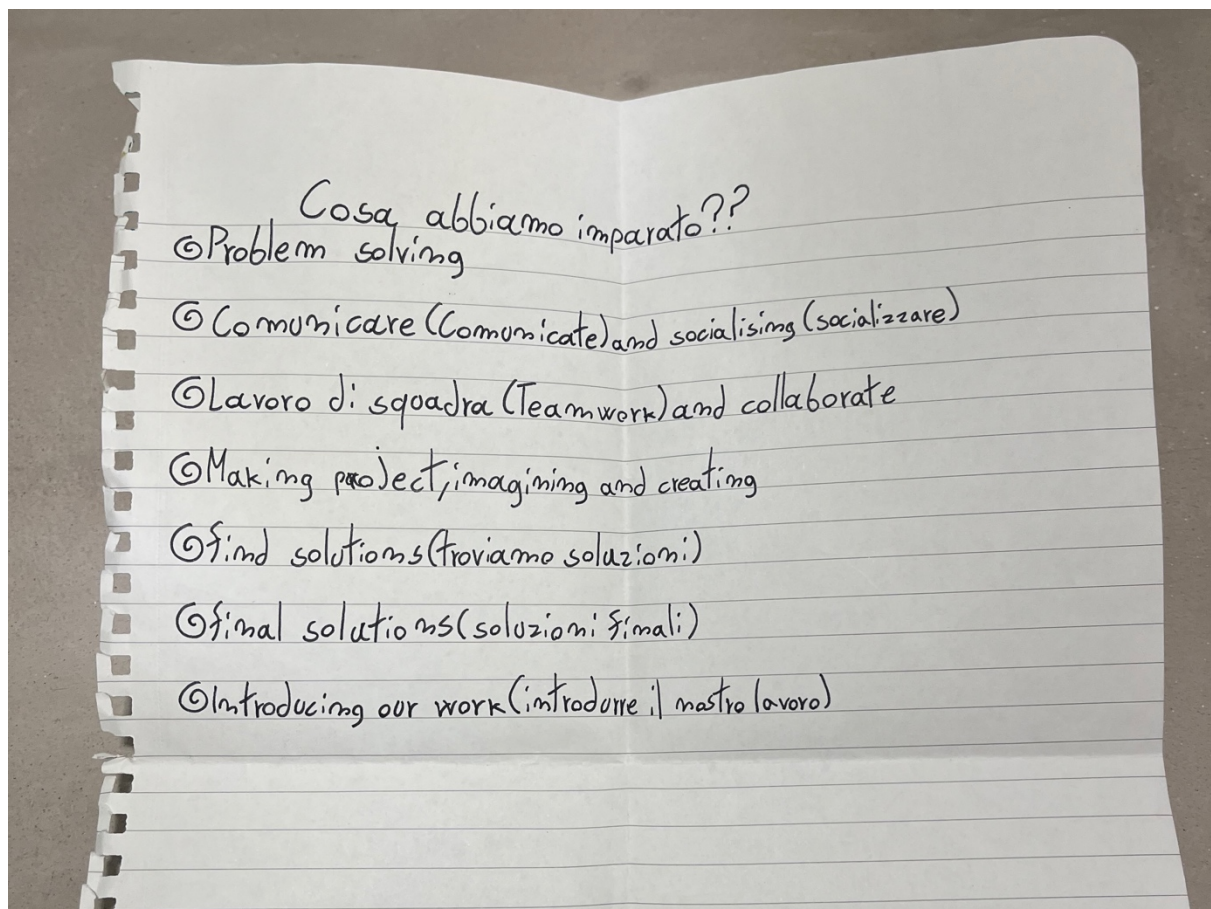 Cosa abbiamo imparato??
Problem solving
Comunicare (Comunicate) and socialising (socializzare)
Lavoro di squadra (Teamwork) and collaborate
Making project, imagining and creating
find solutions (troviamo soluzioni)
final solutions (soluzioni finali)
Introducing our work (introdurre il nostro lavoro)